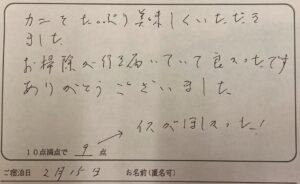 カニをたっぷり美味しくいただき
ました
お掃除が行き届いていて良かったです
ありがとうございました
イスがほしかった!
10点満点で 9 点
ご宿泊日 2月15日 お名前(匿名可)